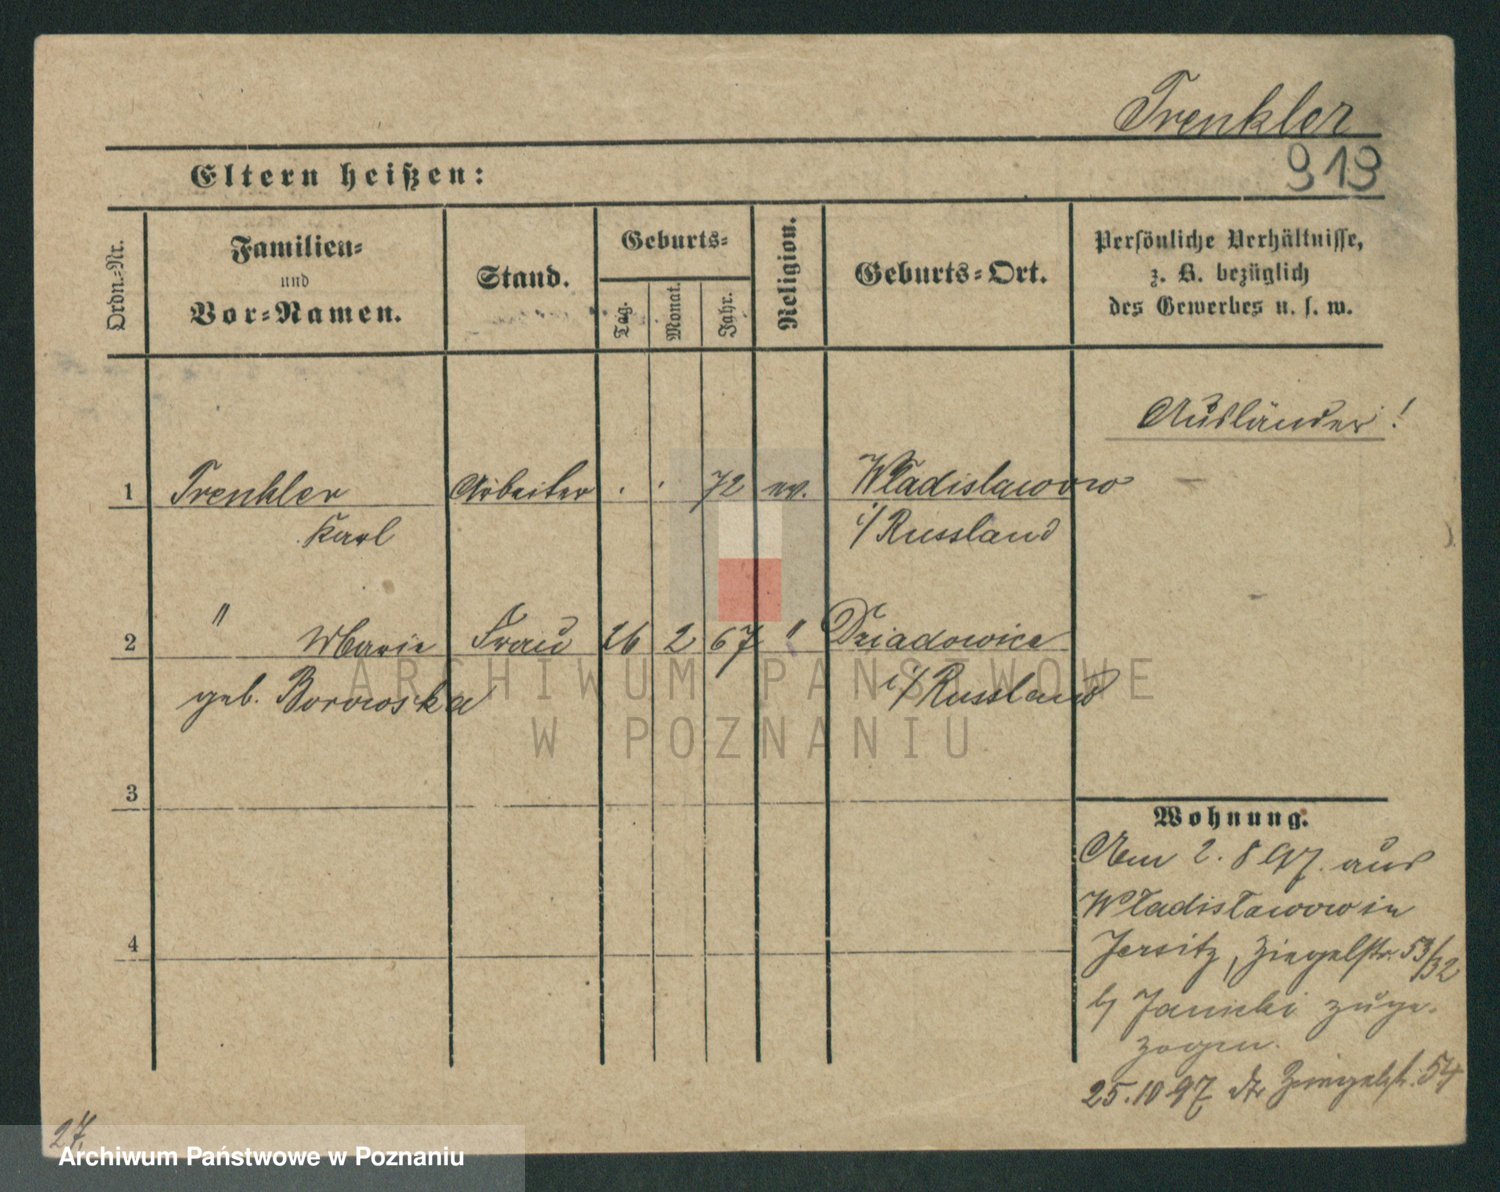 Trenkler
919
Eltern heißen:
Ordn.-Nr.
Familien-
und
Vor-Namen.
Stand.
Geburts-
Tag.
Monat.
Jahr.
Religion.
Geburts-Ort.
Persönliche Verhältnisse,
z. B. bezüglich
des Gewerbes u. s. w.
Ausländer!
1 Trenkler Arbeiter . . 72 ev. Władislawowo
Karl i/Russland
2 " Marie Frau 26 2 67 " Dziadowice
geb. Borowska i/Russland
ARCHIWUM PAŃSTWOWE
W POZNANIU
3
Wohnung.
Am 2. 8 97. aus
Władisławowo in
4
Jersitz, Ziegelstr. 53/32
b/ Janicki zuge-
zogen.
25.10 97 Ziegelstr. 54
27.
Archiwum Państwowe w Poznaniu